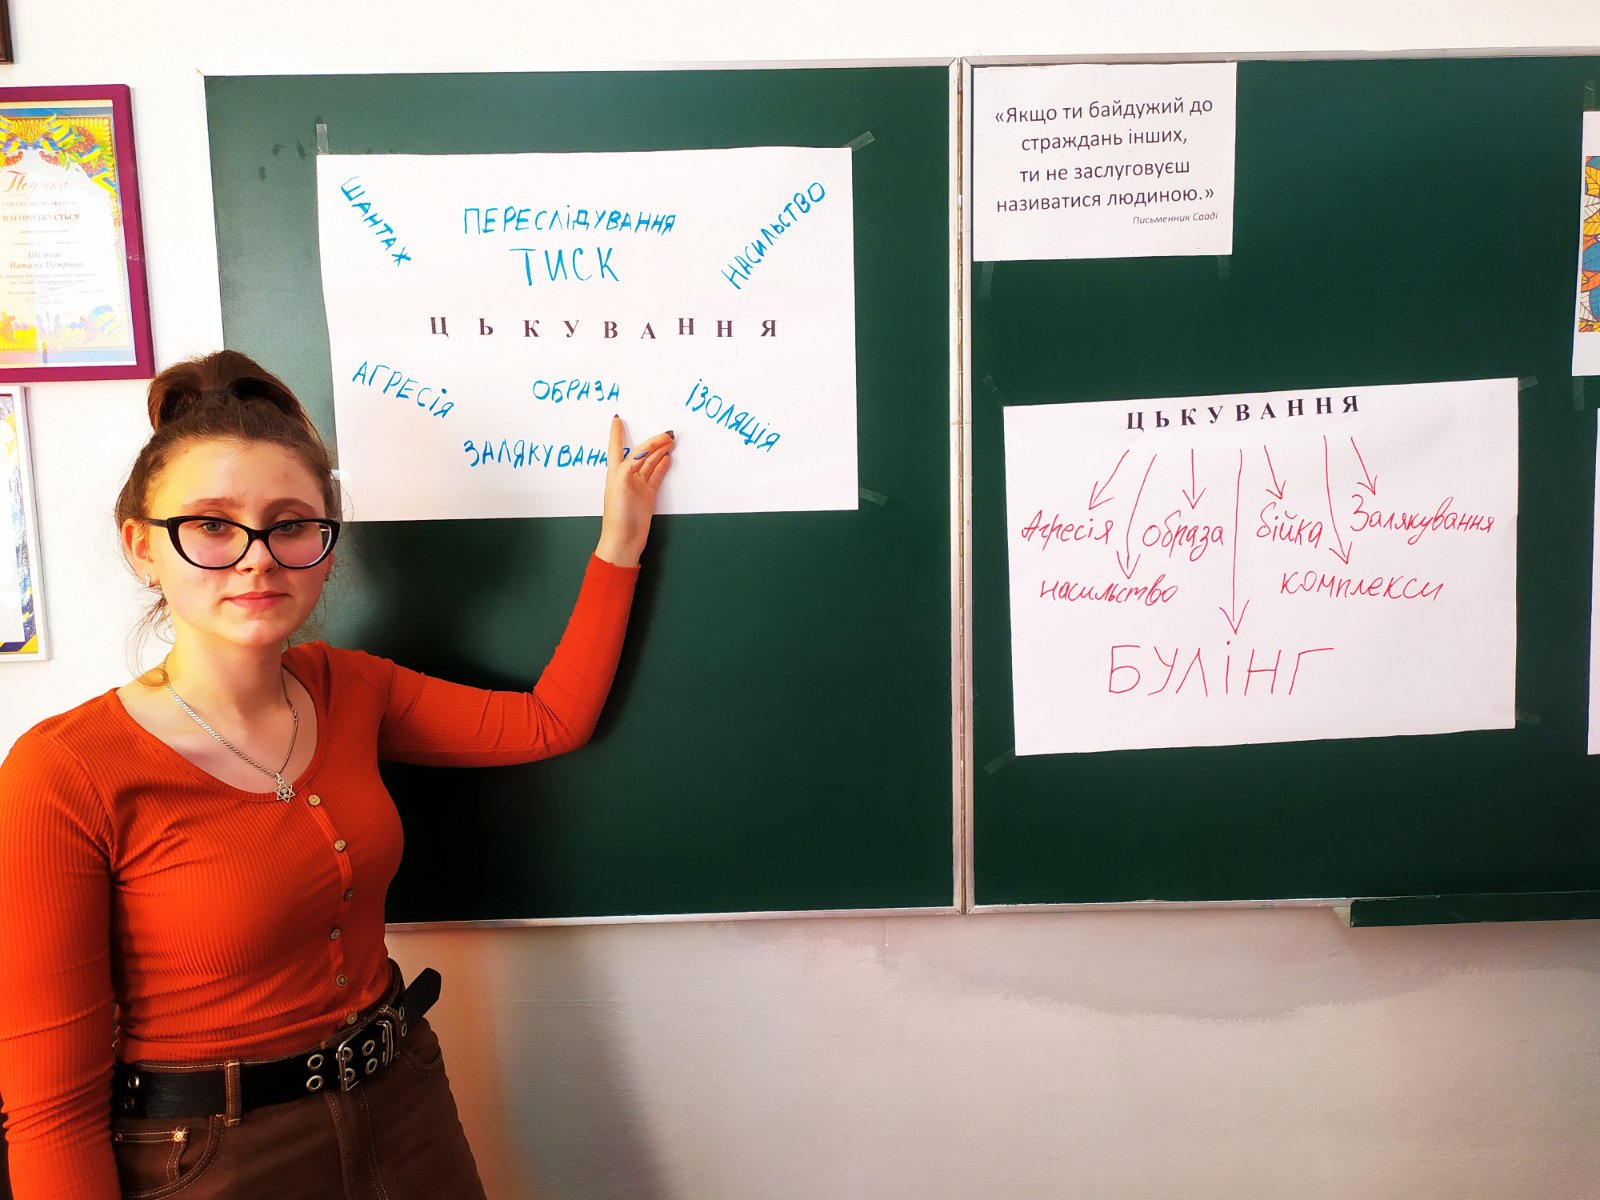 Подяка
НАГОРОДЖУЄТЬСЯ
Шульган
Наталія Петрівна
ШАНТАЖ
ПЕРЕСЛІДУВАННЯ
ТИСК
НАСИЛЬСТВО
ЦЬКУВАННЯ
АГРЕСІЯ
ОБРАЗА
ІЗОЛЯЦІЯ
ЗАЛЯКУВАН
«Якщо ти байдужий до
страждань інших,
ти не заслуговуєш
називатися людиною.»
Письменник Сааді
ЦЬКУВАННЯ
Агресія
образа
бійка
Залякування
насильство
комплекси
БУЛІНГ